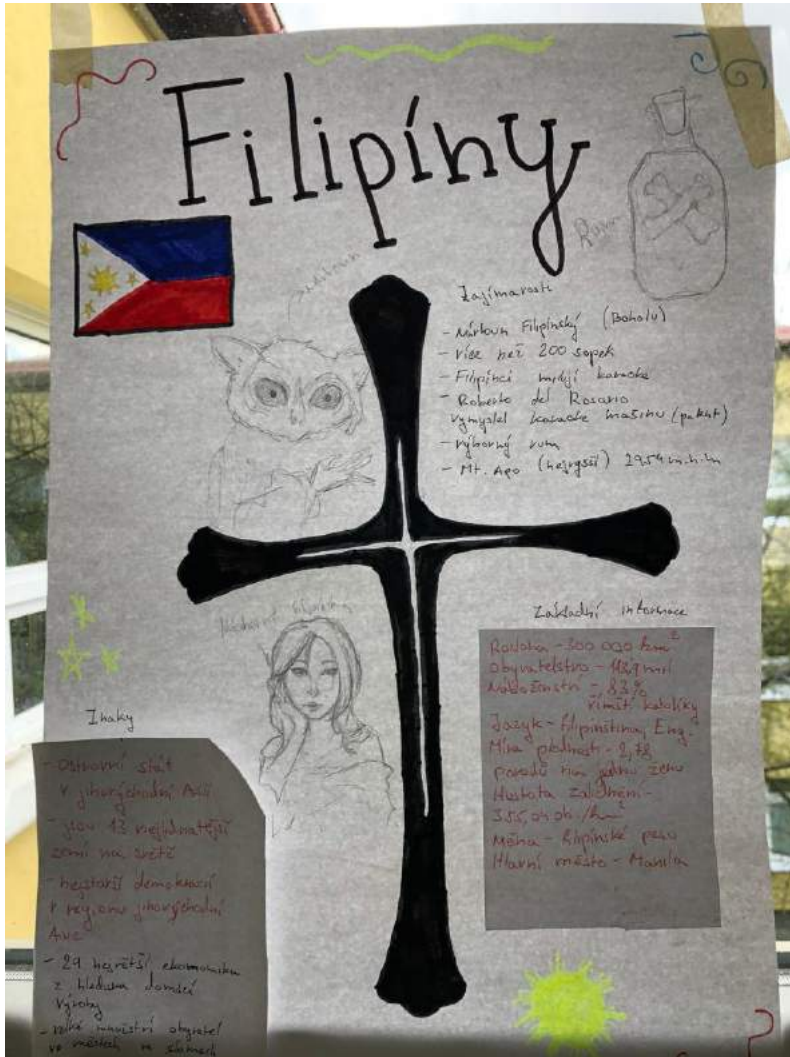 Filipíny
Rum
nártoun
Zajímavosti
- Nártoun Filipínský (Boholu)
- více než 200 sopek
- Filipínci milují karaoke
- Roberto del Rosario
vymyslel karaoke mašinu (patent)
- výborný rum
- Mt. Apo (nejvyšší) 2954 m.n.m
Základní informace
Rozloha - 300 000 km²
Obyvatelstvo - 113,9 mil
Náboženství - 83%
římští katolíky
Jazyk - filipínština, Eng.
Míra plodnosti - 2,78
porodů na jednu ženu
Hustota zalidnění -
355,04 ob./km²
Měna - filipínské peso
Hlavní město - Manila
Znaky
- Ostrovní stát
v jihovýchodní Asii
- jsou 13 nejlidnatější
zemí na světě
- nejstarší demokracií
v regionu jihovýchodní
Asie
- 29 největší ekonomika
z hlediska domácí
výroby
- velké množství obyvatel
ve městech ve slumech